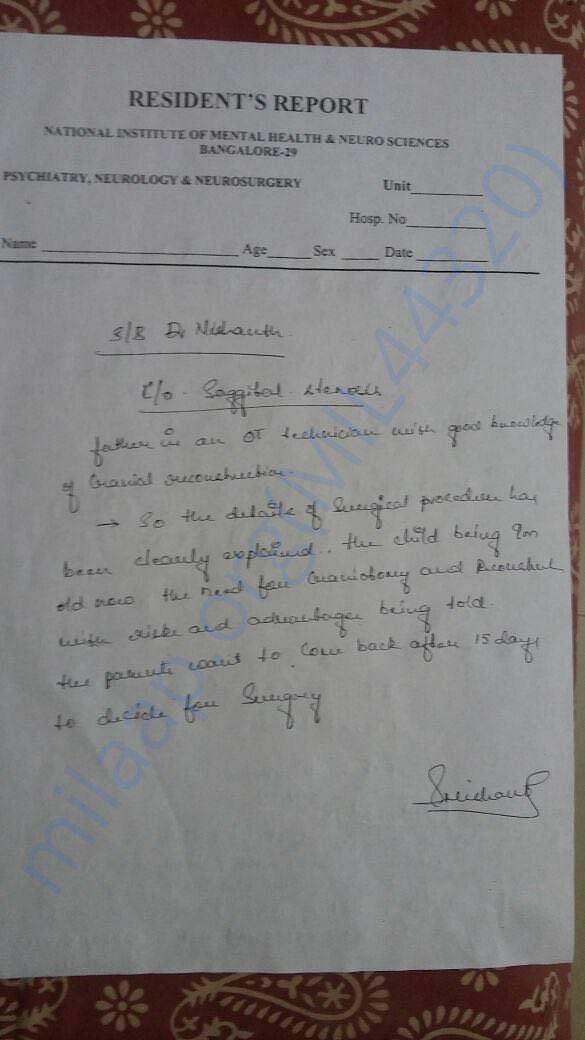 RESIDENT'S REPORT
NATIONAL INSTITUTE OF MENTAL HEALTH & NEURO SCIENCES
BANGALORE-29
PSYCHIATRY, NEUROLOGY & NEUROSURGERY Unit
Hosp. No
Name Age Sex Date
S/B Dr Nishanth.
Saggital stenosis
father is an OT technician with good knowledge
of Cranial reconstruction.
→ So the details of Surgical procedure has
been clearly explained. the child being 9m
old now the need for Craniotomy and
with risks and advantages being told.
the parents want to come back after 15 days
to decide for Surgery
milaap.org(MIL44320)